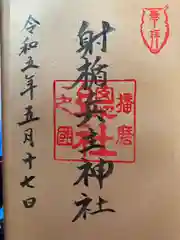 奉拝
射楯兵主神社
播磨
総社
之國
令和五年五月十七日